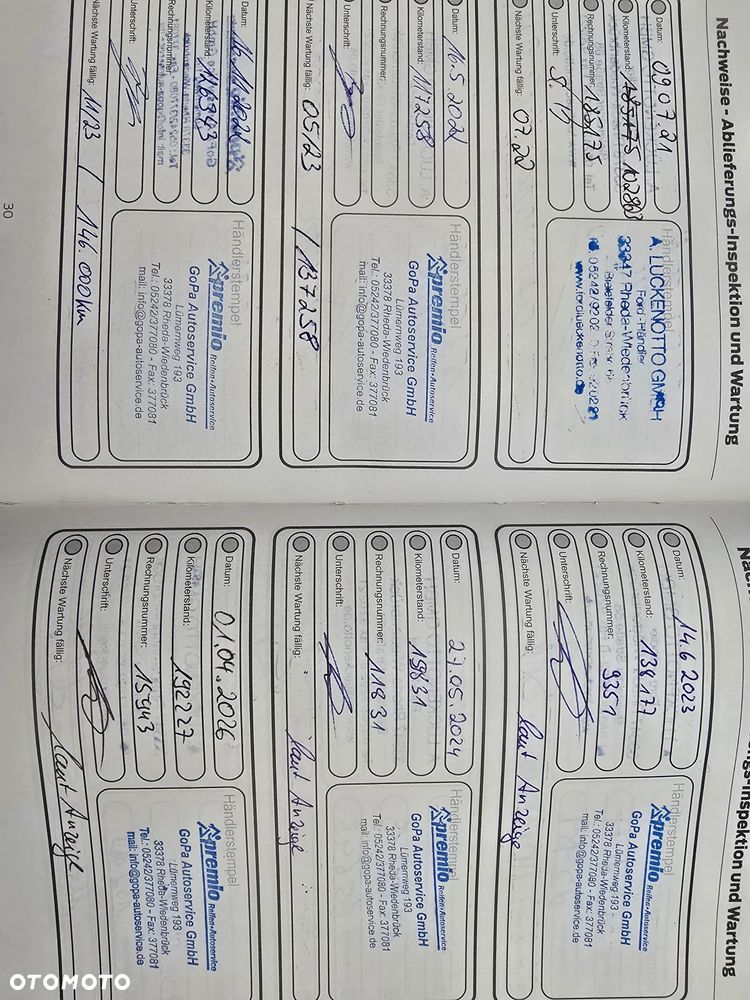 Nachweise - Ablieferungs-Inspektion und Wartung
Datum: 09.07.21
Kilometerstand: 185175 102863
Rechnungsnummer: 185175
Unterschrift:
Nächste Wartung fällig: 07.22
Händlerstempel
A. LÜCKENOTTO GMBH
Ford-Händler
33347 Rheda-Wiedenbrück
Datum: 10.5.2022
Kilometerstand: 117258
Rechnungsnummer:
Unterschrift:
Nächste Wartung fällig: 05/23 / 137258
Händlerstempel
premio Reifen+Autoservice
GoPa Autoservice GmbH
Lümernweg 193
33378 Rheda-Wiedenbrück
Tel.: 05242/377080 - Fax: 377081
mail: info@gopa-autoservice.de
Datum:
Kilometerstand: 116963
Rechnungsnummer:
Unterschrift:
Nächste Wartung fällig: 11/23 / 146.000km
Händlerstempel
premio Reifen+Autoservice
GoPa Autoservice GmbH
Lümernweg 193
33378 Rheda-Wiedenbrück
Tel.: 05242/377080 - Fax: 377081
mail: info@gopa-autoservice.de
30
ngs-Inspektion und Wartung
Datum: 14.6 2023
Kilometerstand: 138177
Rechnungsnummer: 9351
Unterschrift:
Nächste Wartung fällig: laut Anzeige
Händlerstempel
premio Reifen+Autoservice
GoPa Autoservice GmbH
Lümernweg 193
33378 Rheda-Wiedenbrück
Tel.: 05242/377080 - Fax: 377081
mail: info@gopa-autoservice.de
Datum: 27.05.2024
Kilometerstand: 15831
Rechnungsnummer: 11831
Unterschrift:
Nächste Wartung fällig: laut Anzeige
Händlerstempel
premio Reifen+Autoservice
GoPa Autoservice GmbH
Lümernweg 193
33378 Rheda-Wiedenbrück
Tel.: 05242/377080 - Fax: 377081
mail: info@gopa-autoservice.de
Datum: 01.04.2026
Kilometerstand: 192227
Rechnungsnummer: 15943
Unterschrift:
Nächste Wartung fällig: laut Anzeige
Händlerstempel
premio Reifen+Autoservice
GoPa Autoservice GmbH
Lümernweg 193
33378 Rheda-Wiedenbrück
Tel.: 05242/377080 - Fax: 377081
mail: info@gopa-autoservice.de
OTOMOTO